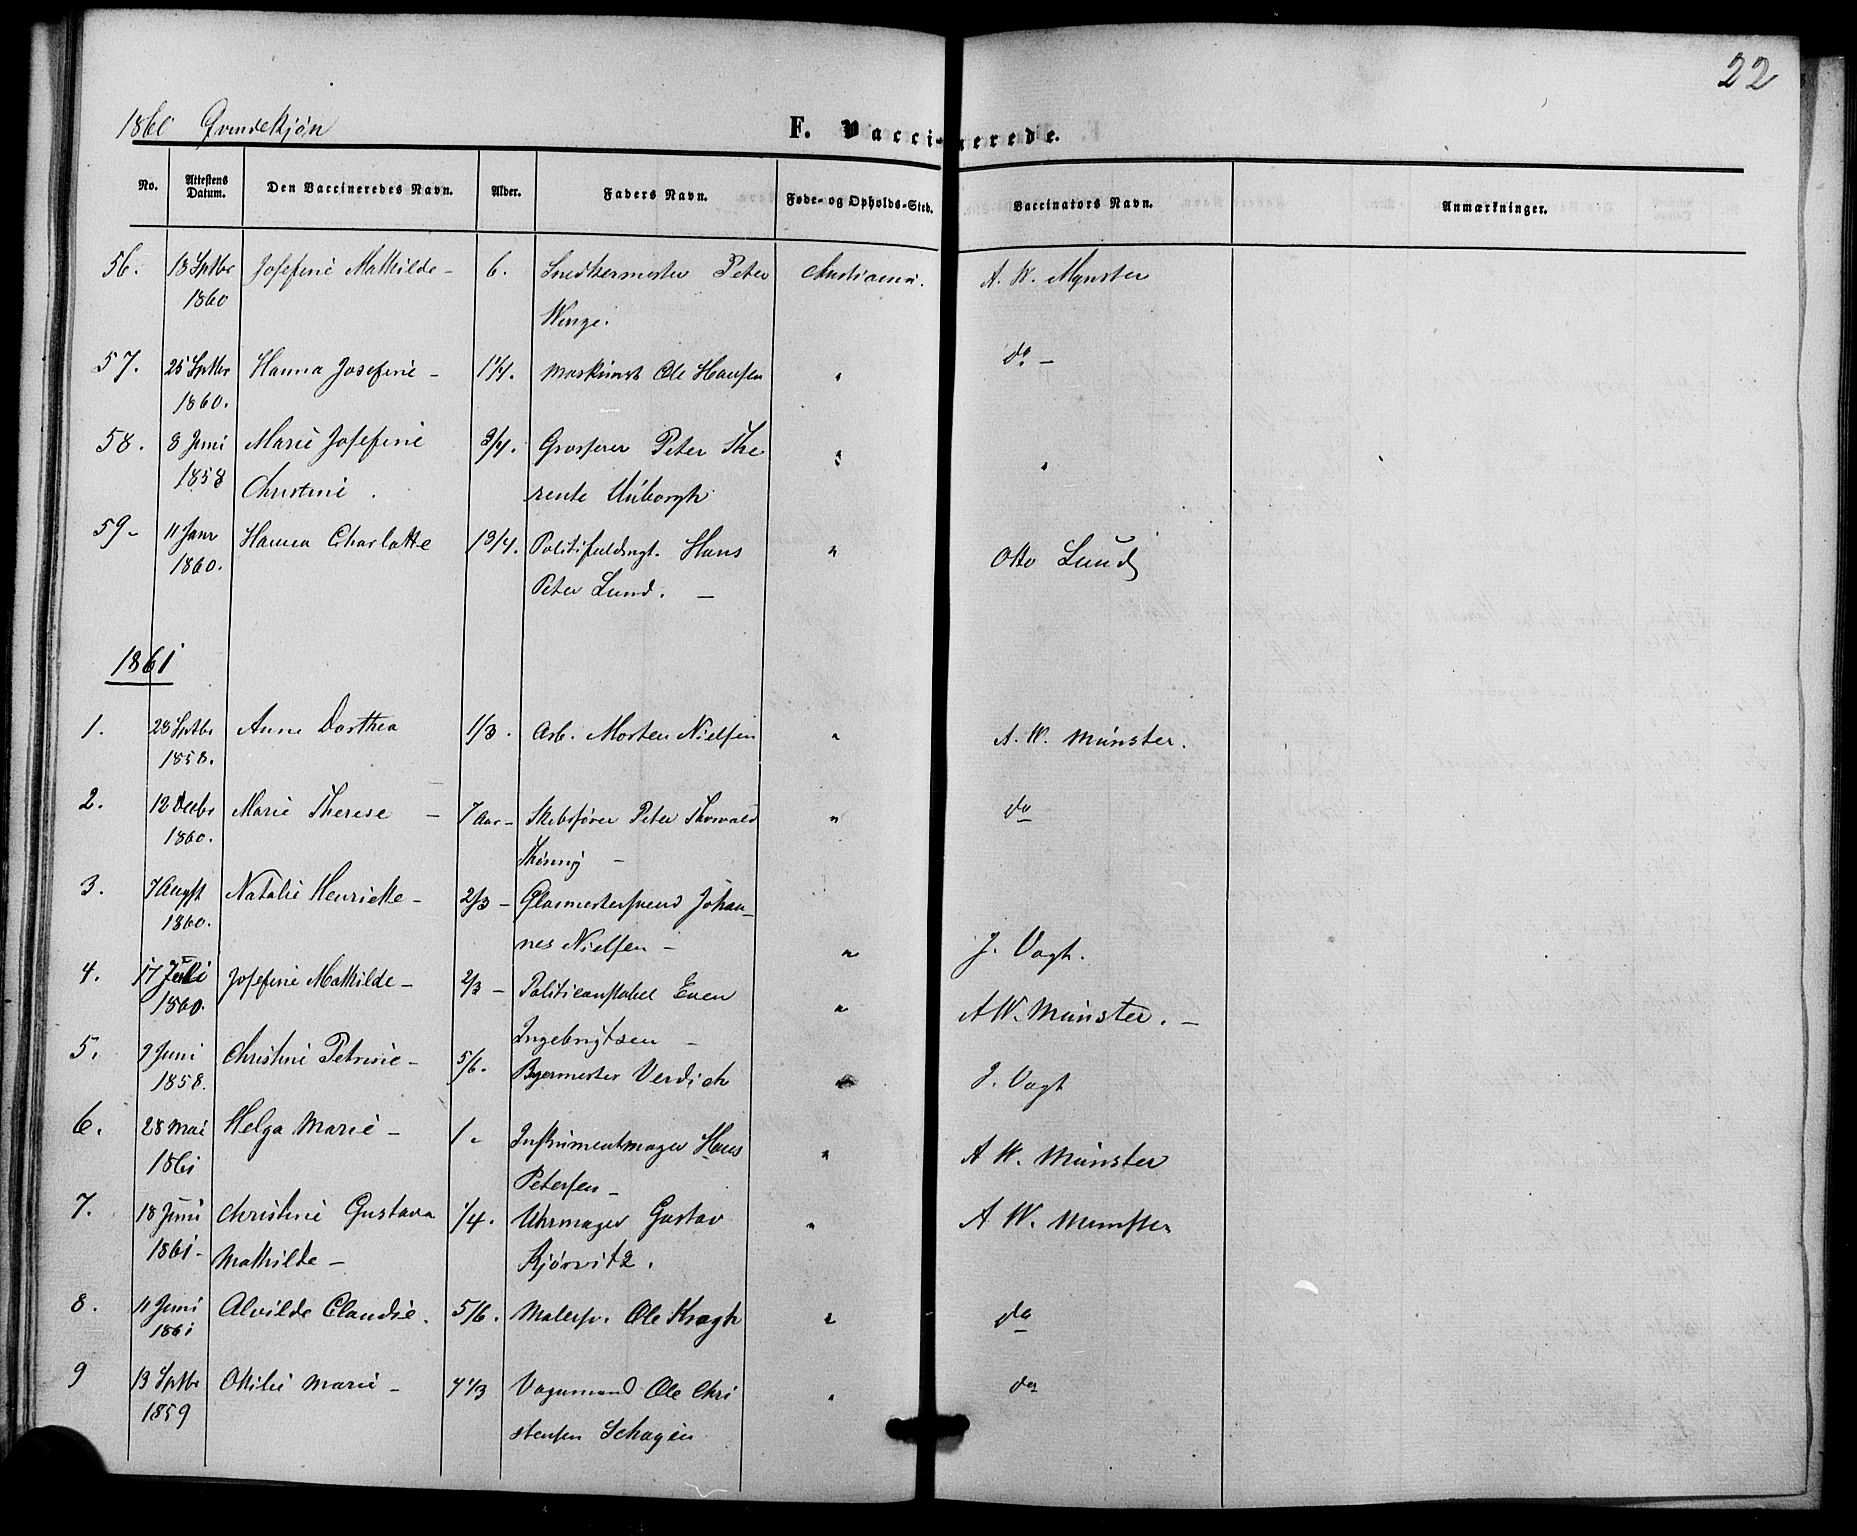 22
1860 Qvindekjøn
F. Vaccinerede.
No. Attestens Datum. Den Vaccineredes Navn. Alder. Faders Navn. Føde- og Opholds-Sted. Vaccinators Navn. Anmærkninger.
56. 18 Sptbr Josefine Mathilde - 6. Snedkermester Peter Christiania. A. W. Mynster
1860 Winge.
57. 25 Sptbr Hanna Josefine - 1 1/4. Maskinist Ole Hansen " do -
1860.
58. 8 Juni Marie Josefine 3/4. Grosserer Peter The " "
1858 Christine . rente
59 - 11 Janr Hanna Charlotte 1 3/4. Politifuldmgt. Hans " Otto Lund
1860. Peter Lund. -
1861
1. 28 Sptbr Anne Dorthea 1/3. Arb. Morten Nielsen " A. W. Münster.
1858.
2. 12 Decbr Marie Therese - 7 Aar - Skibsfører Peter Thorvald " do
1860. -
3. 7 Augst Natalie Henriette - 2/3 - Glasmestersvend Johan-
1860. nes Nielsen - " J. Vogt.
4. 17 Juli Josefine Mathilde - 2/3 - Politiconstabel Even " A W. Münster. -
1860. Ingebrigtsen -
5. 9 Juni Christine Petrine - 5/6. Bygmester Verdich " J. Vogt
1858.
6. 28 Mai Helga Marie - 1 - Instrumentmager Hans " A W. Münster
1861 Petersen -
7. 18 Juni Christine Gustava 1/4. Uhrmager Gustav " A W. Münster
1861 - Mathilde - Kjørvitz.
8. 11 Juni Alvilde Claudie. 5/6. Malersv. Ole Kragh " do
1861
9 13 Sptbr Otilie Marie - 4 1/3 Vognmand Ole Chri "  do
1859 stensen Schagen